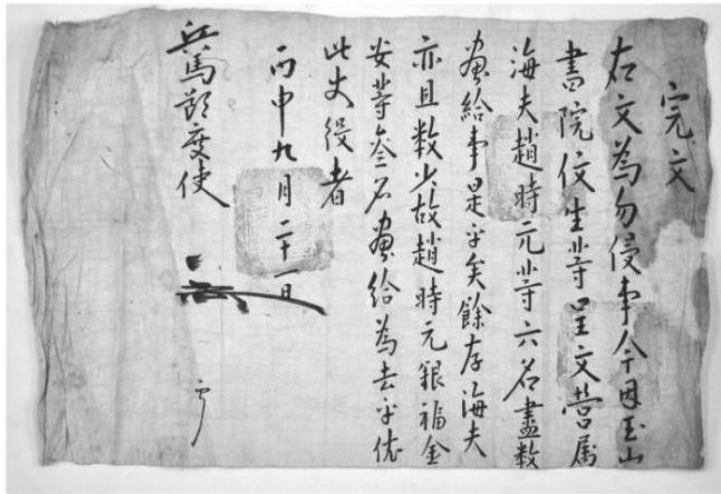 完文
右文為勿侵事今因玉山
書院伩生等呈文營属
海夫趙時元等六名盡数
畫給事是乎矣餘存海夫
亦且数少故趙時元銀福金
安等叅名畫給為去乎依
此丈役者
丙申九月二十一日
兵馬節度使